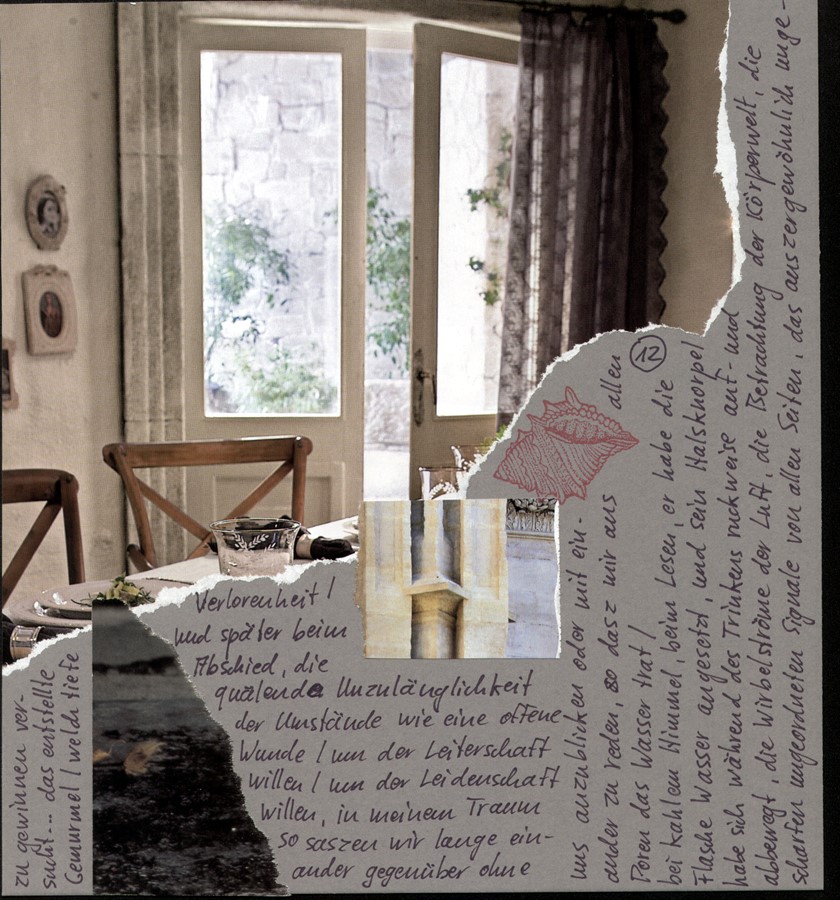 zu gewinnen ver-
sucht... das entstellte
Gemurmel / welch tiefe
Verlorenheit /
und später beim
Abschied, die
quälende Unzulänglichkeit
der Umstände wie eine offene
Wunde / um der Leiterschaft
willen / um der Leidenschaft
willen, in meinem Traum
so saszen wir lange ein-
ander gegenüber ohne
uns anzublicken oder mit ein-
ander zu reden, so dasz mir aus allen
Poren das Wasser trat /
12
bei kahlem Himmel, beim Lesen, er habe die
Flasche Wasser angesetzt, und sein Halsknorpel
habe sich während des Trinkens ruckweise auf- und
abbewegt, die Wirbelströme der Luft, die Betrachtung der Körperwelt, die
scharfen ungeordneten Signale von allen Seiten, das auszergewöhnlich unge-